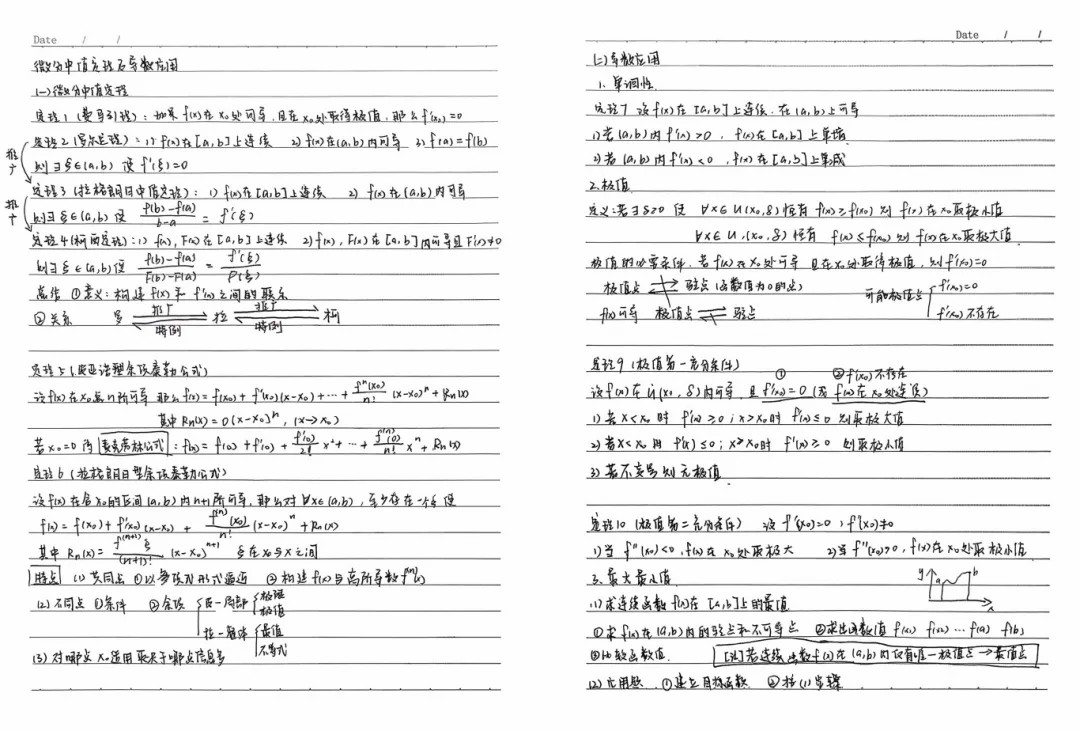 Date / /
微分中值定理及导数应用
(一)微分中值定理
定理1(费马引理):如果f(x)在x₀处可导,且在x₀处取得极值,那么f'(x₀)=0
定理2(罗尔定理):1)f(x)在[a,b]上连续 2)f(x)在(a,b)内可导 3)f(a)=f(b)
推广
则∃ξ∈(a,b) 使f'(ξ)=0
定理3(拉格朗日中值定理):1)f(x)在[a,b]上连续 2)f(x)在(a,b)内可导
推广
则∃ξ∈(a,b)使 f(b)-f(a)/b-a = f'(ξ)
定理4(柯西定理):1)f(x),F(x)在[a,b]上连续 2)f(x),F(x)在[a,b]内可导且F'(x)≠0
则∃ξ∈(a,b)使 f(b)-f(a)/F(b)-F(a) = f'(ξ)/F'(ξ)
①意义:构建f(x)和f'(x)之间的联系
②关系 罗 推广 特例 拉 推广 特例 柯
定理5(佩亚诺型余项泰勒公式)
设f(x)在x₀ n阶可导 那么f(x)=f(x₀)+f'(x₀)(x-x₀)+…+fⁿ(x₀)/n!(x-x₀)ⁿ+Rn(x)
其中Rn(x)=o(x-x₀)ⁿ,(x→x₀)
若x₀=0 为麦克劳林公式:f(x)=f(0)+f'(0)+f''(0)/2! x²+…+f⁽ⁿ⁾(0)/n! xⁿ+Rn(x)
定理6(拉格朗日型余项泰勒公式)
设f(x)在含x₀的区间(a,b)内n+1阶可导,那么对∀x∈(a,b),至少存在一个ξ使
f(x)=f(x₀)+f'(x₀)(x-x₀)+ f⁽ⁿ⁾(x₀)/n!(x-x₀)ⁿ+Rn(x)
其中Rn(x)=f⁽ⁿ⁺¹⁾ξ/(n+1)!(x-x₀)ⁿ⁺¹ ξ在x₀与x之间
特点 (1)共同点 ①以多项式形式逼近 ②构建f(x)与高阶导数f⁽ⁿ⁾(x)
(2)不同点 ①条件 ②余项 佩—局部 极限 极值
拉—整体 最值 不等式
(3)对哪点x₀适用取决于哪点信息多
Date / /
(二)导数应用
1.单调性
定理7 设f(x)在[a,b]上连续,在(a,b)上可导
1)若(a,b)内f'(x)>0,f(x)在[a,b]上单增
2)若(a,b)内f'(x)<0,f(x)在[a,b]上单减
2.极值
定义:若∃δ>0 使 ∀x∈U(x₀,δ)恒有f(x)≥f(x₀)则f(x)在x₀取极小值
∀x∈U,(x₀,δ)恒有 f(x)≤f(x₀)则f(x)在x₀取极大值
极值的必需条件,若f(x)在x₀处可导 且在x₀处取得极值,则f'(x₀)=0
极值点 驻点(函数值为0的点) 可能极值点 f'(x₀)=0
f(x)可导 极值点 驻点 f'(x₀)不存在
定理9(极值第一充分条件)
① ②f'(x₀)不存在
设f(x)在Ů(x₀,δ)内可导,且f'(x₀)=0(或f(x)在x₀处连续)
1)若x<x₀时 f'(x)≥0;x>x₀时 f'(x)≤0 则取极大值
2)若x<x₀时 f'(x)≤0;x>x₀时 f'(x)≥0 则取极小值
3)若不变号则无极值
定理10(极值第二充分条件) 设f'(x₀)=0,f''(x₀)≠0
1)当f''(x₀)<0,f(x)在x₀处取极大 2)当f''(x₀)>0,f(x)在x₀处取极小值
3.最大最小值
y a b x
(1)求连续函数f(x)在[a,b]上的最值
①求f(x)在(a,b)内的驻点和不可导点 ②求出函数值f(x₁) f(x₂)…f(a) f(b)
③比较函数值. [注]若连续函数f(x)在(a,b)内仅有唯一极值点→最值点
(2)应用题 ①建立目标函数 ②按(1)步骤